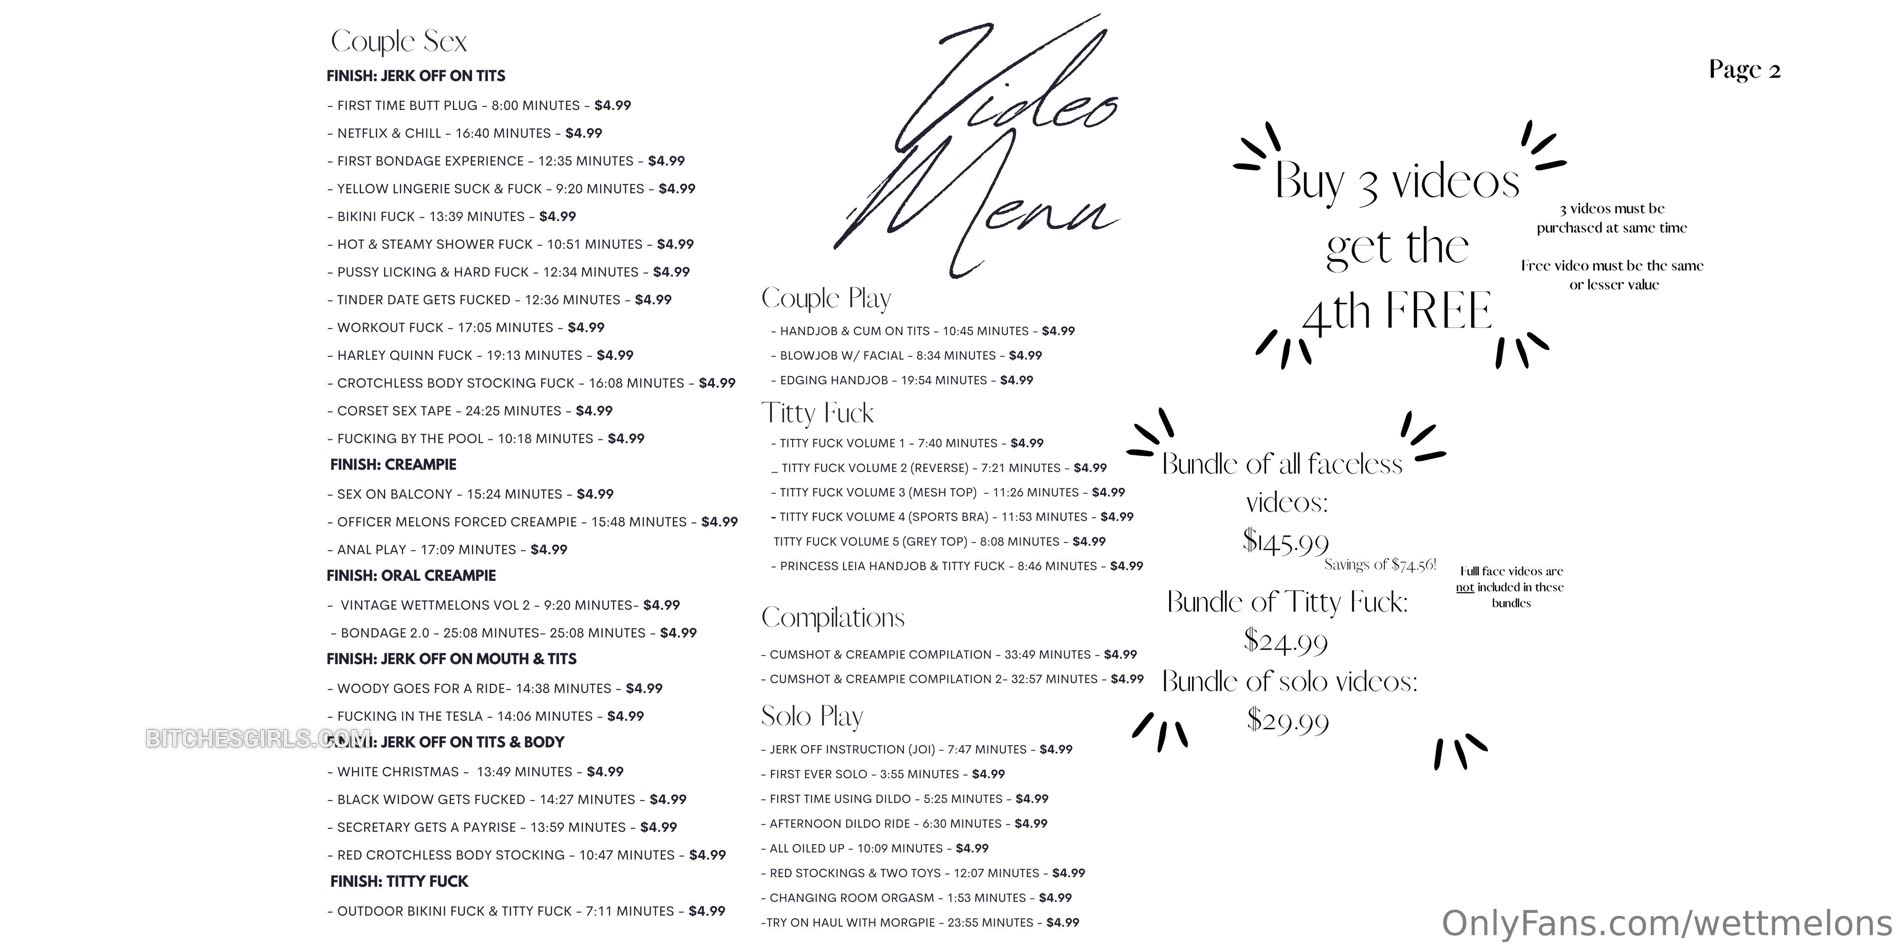 Couple Sex
FINISH: JERK OFF ON TITS
- FIRST TIME BUTT PLUG - 8:00 MINUTES - $4.99
- NETFLIX & CHILL - 16:40 MINUTES - $4.99
- FIRST BONDAGE EXPERIENCE - 12:35 MINUTES - $4.99
- YELLOW LINGERIE SUCK & FUCK - 9:20 MINUTES - $4.99
- BIKINI FUCK - 13:39 MINUTES - $4.99
- HOT & STEAMY SHOWER FUCK - 10:51 MINUTES - $4.99
- PUSSY LICKING & HARD FUCK - 12:34 MINUTES - $4.99
- TINDER DATE GETS FUCKED - 12:36 MINUTES - $4.99
- WORKOUT FUCK - 17:05 MINUTES - $4.99
- HARLEY QUINN FUCK - 19:13 MINUTES - $4.99
- CROTCHLESS BODY STOCKING FUCK - 16:08 MINUTES - $4.99
- CORSET SEX TAPE - 24:25 MINUTES - $4.99
- FUCKING BY THE POOL - 10:18 MINUTES - $4.99
FINISH: CREAMPIE
- SEX ON BALCONY - 15:24 MINUTES - $4.99
- OFFICER MELONS FORCED CREAMPIE - 15:48 MINUTES - $4.99
- ANAL PLAY - 17:09 MINUTES - $4.99
FINISH: ORAL CREAMPIE
- VINTAGE WETTMELONS VOL 2 - 9:20 MINUTES- $4.99
- BONDAGE 2.0 - 25:08 MINUTES- 25:08 MINUTES - $4.99
FINISH: JERK OFF ON MOUTH & TITS
- WOODY GOES FOR A RIDE- 14:38 MINUTES - $4.99
- FUCKING IN THE TESLA - 14:06 MINUTES - $4.99
BITCHESGIRLS.COM
FINISH: JERK OFF ON TITS & BODY
- WHITE CHRISTMAS - 13:49 MINUTES - $4.99
- BLACK WIDOW GETS FUCKED - 14:27 MINUTES - $4.99
- SECRETARY GETS A PAYRISE - 13:59 MINUTES - $4.99
- RED CROTCHLESS BODY STOCKING - 10:47 MINUTES - $4.99
FINISH: TITTY FUCK
- OUTDOOR BIKINI FUCK & TITTY FUCK - 7:11 MINUTES - $4.99
Video
Menu
Couple Play
- HANDJOB & CUM ON TITS - 10:45 MINUTES - $4.99
- BLOWJOB W/ FACIAL - 8:34 MINUTES - $4.99
- EDGING HANDJOB - 19:54 MINUTES - $4.99
Titty Fuck
- TITTY FUCK VOLUME 1 - 7:40 MINUTES - $4.99
_ TITTY FUCK VOLUME 2 (REVERSE) - 7:21 MINUTES - $4.99
- TITTY FUCK VOLUME 3 (MESH TOP) - 11:26 MINUTES - $4.99
- TITTY FUCK VOLUME 4 (SPORTS BRA) - 11:53 MINUTES - $4.99
TITTY FUCK VOLUME 5 (GREY TOP) - 8:08 MINUTES - $4.99
- PRINCESS LEIA HANDJOB & TITTY FUCK - 8:46 MINUTES - $4.99
Compilations
- CUMSHOT & CREAMPIE COMPILATION - 33:49 MINUTES - $4.99
- CUMSHOT & CREAMPIE COMPILATION 2- 32:57 MINUTES - $4.99
Solo Play
- JERK OFF INSTRUCTION (JOI) - 7:47 MINUTES - $4.99
- FIRST EVER SOLO - 3:55 MINUTES - $4.99
- FIRST TIME USING DILDO - 5:25 MINUTES - $4.99
- AFTERNOON DILDO RIDE - 6:30 MINUTES - $4.99
- ALL OILED UP - 10:09 MINUTES - $4.99
- RED STOCKINGS & TWO TOYS - 12:07 MINUTES - $4.99
- CHANGING ROOM ORGASM - 1:53 MINUTES - $4.99
-TRY ON HAUL WITH MORGPIE - 23:55 MINUTES - $4.99
Page 2
Buy 3 videos
get the
4th FREE
3 videos must be
purchased at same time
Free video must be the same
or lesser value
Bundle of all faceless
videos:
$145.99
Savings of $74.56!
Bundle of Titty Fuck:
$24.99
Bundle of solo videos:
$29.99
Fulll face videos are
not included in these
bundles
OnlyFans.com/wettmelons